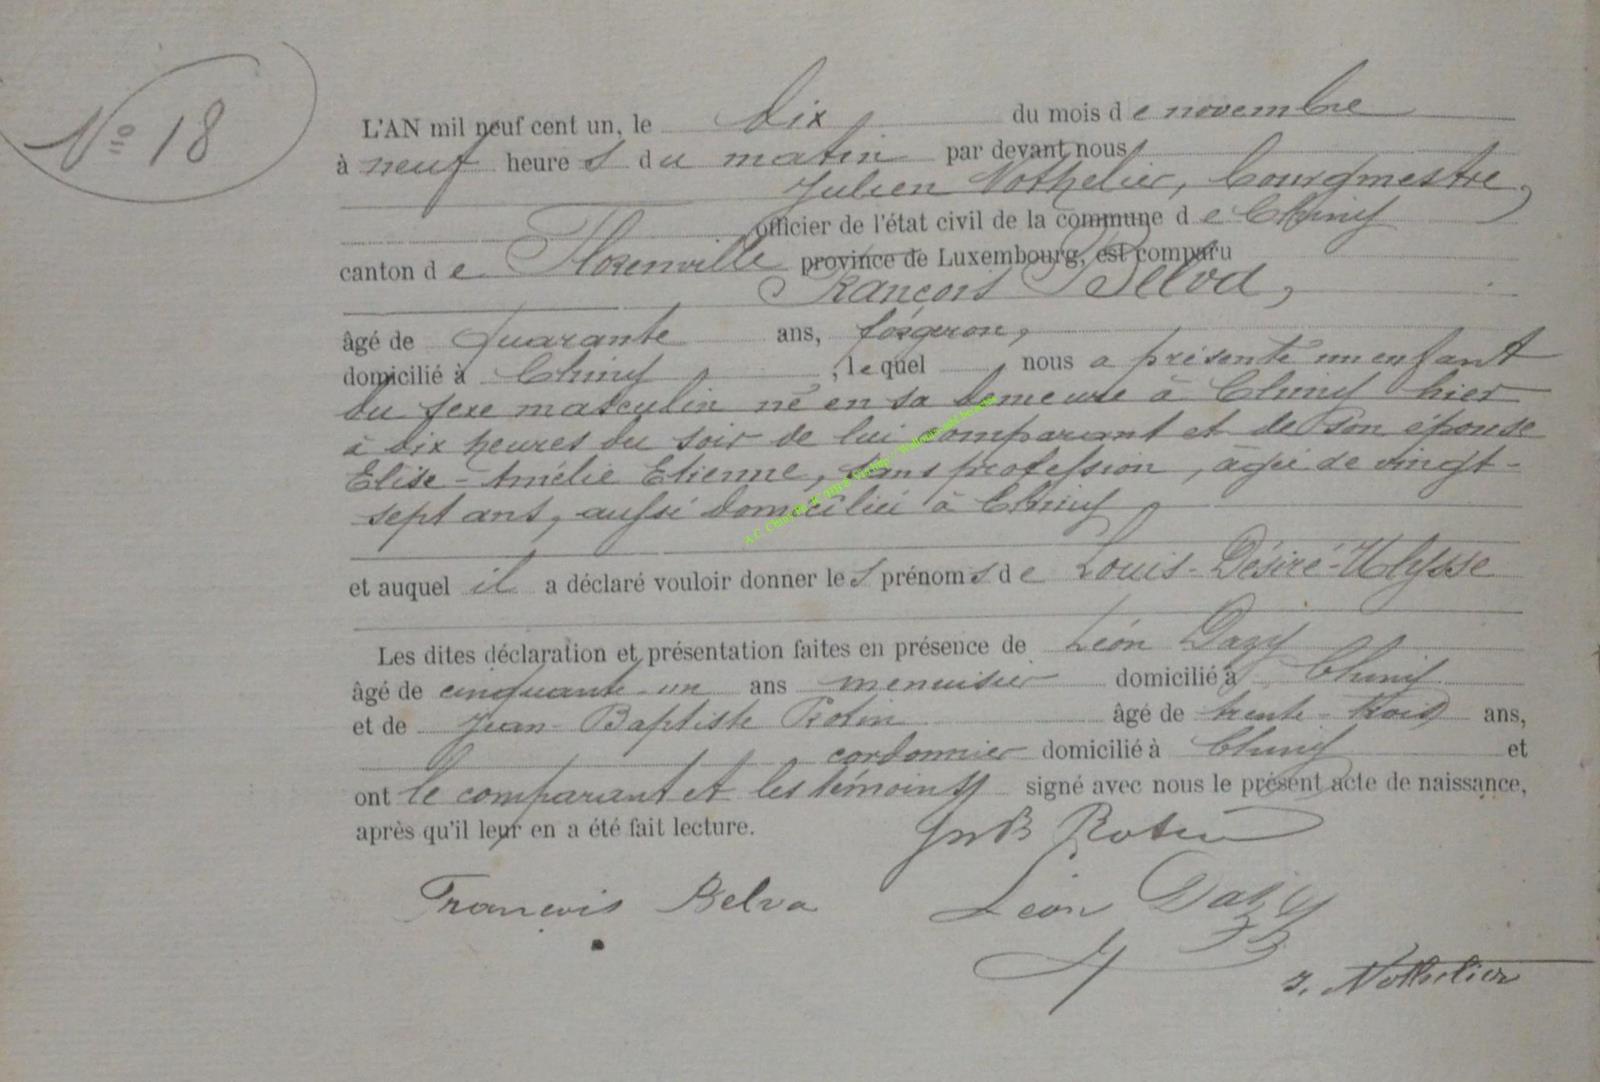 N° 18
L'AN mil neuf cent un, le dix du mois de novembre
à neuf heures du matin par devant nous
Julien Nothelier, Bourgmestre,
officier de l'état civil de la commune de Chiny
canton de Florenville province de Luxembourg, est comparu
François Belva,
âgé de quarante ans, forgeron,
domicilié à Chiny, lequel nous a présenté un enfant
du sexe masculin né en sa demeure à Chiny hier
à dix heures du soir de lui comparant et de son épouse
Elise-Amélie Etienne, sans profession, âgée de vingt-
sept ans, aussi domiciliée à Chiny
et auquel il a déclaré vouloir donner les prénoms de Louis-Désiré-Ulysse
Les dites déclaration et présentation faites en présence de Léon Dazy
âgé de cinquante-un ans menuisier domicilié à Chiny
et de Jean-Baptiste Rotin âgé de trente-trois ans,
cordonnier domicilié à Chiny et
ont le comparant et les témoins signé avec nous le présent acte de naissance,
après qu'il leur en a été fait lecture.
JnB Rotin
François Belva Léon Dazy
J. Nothelier